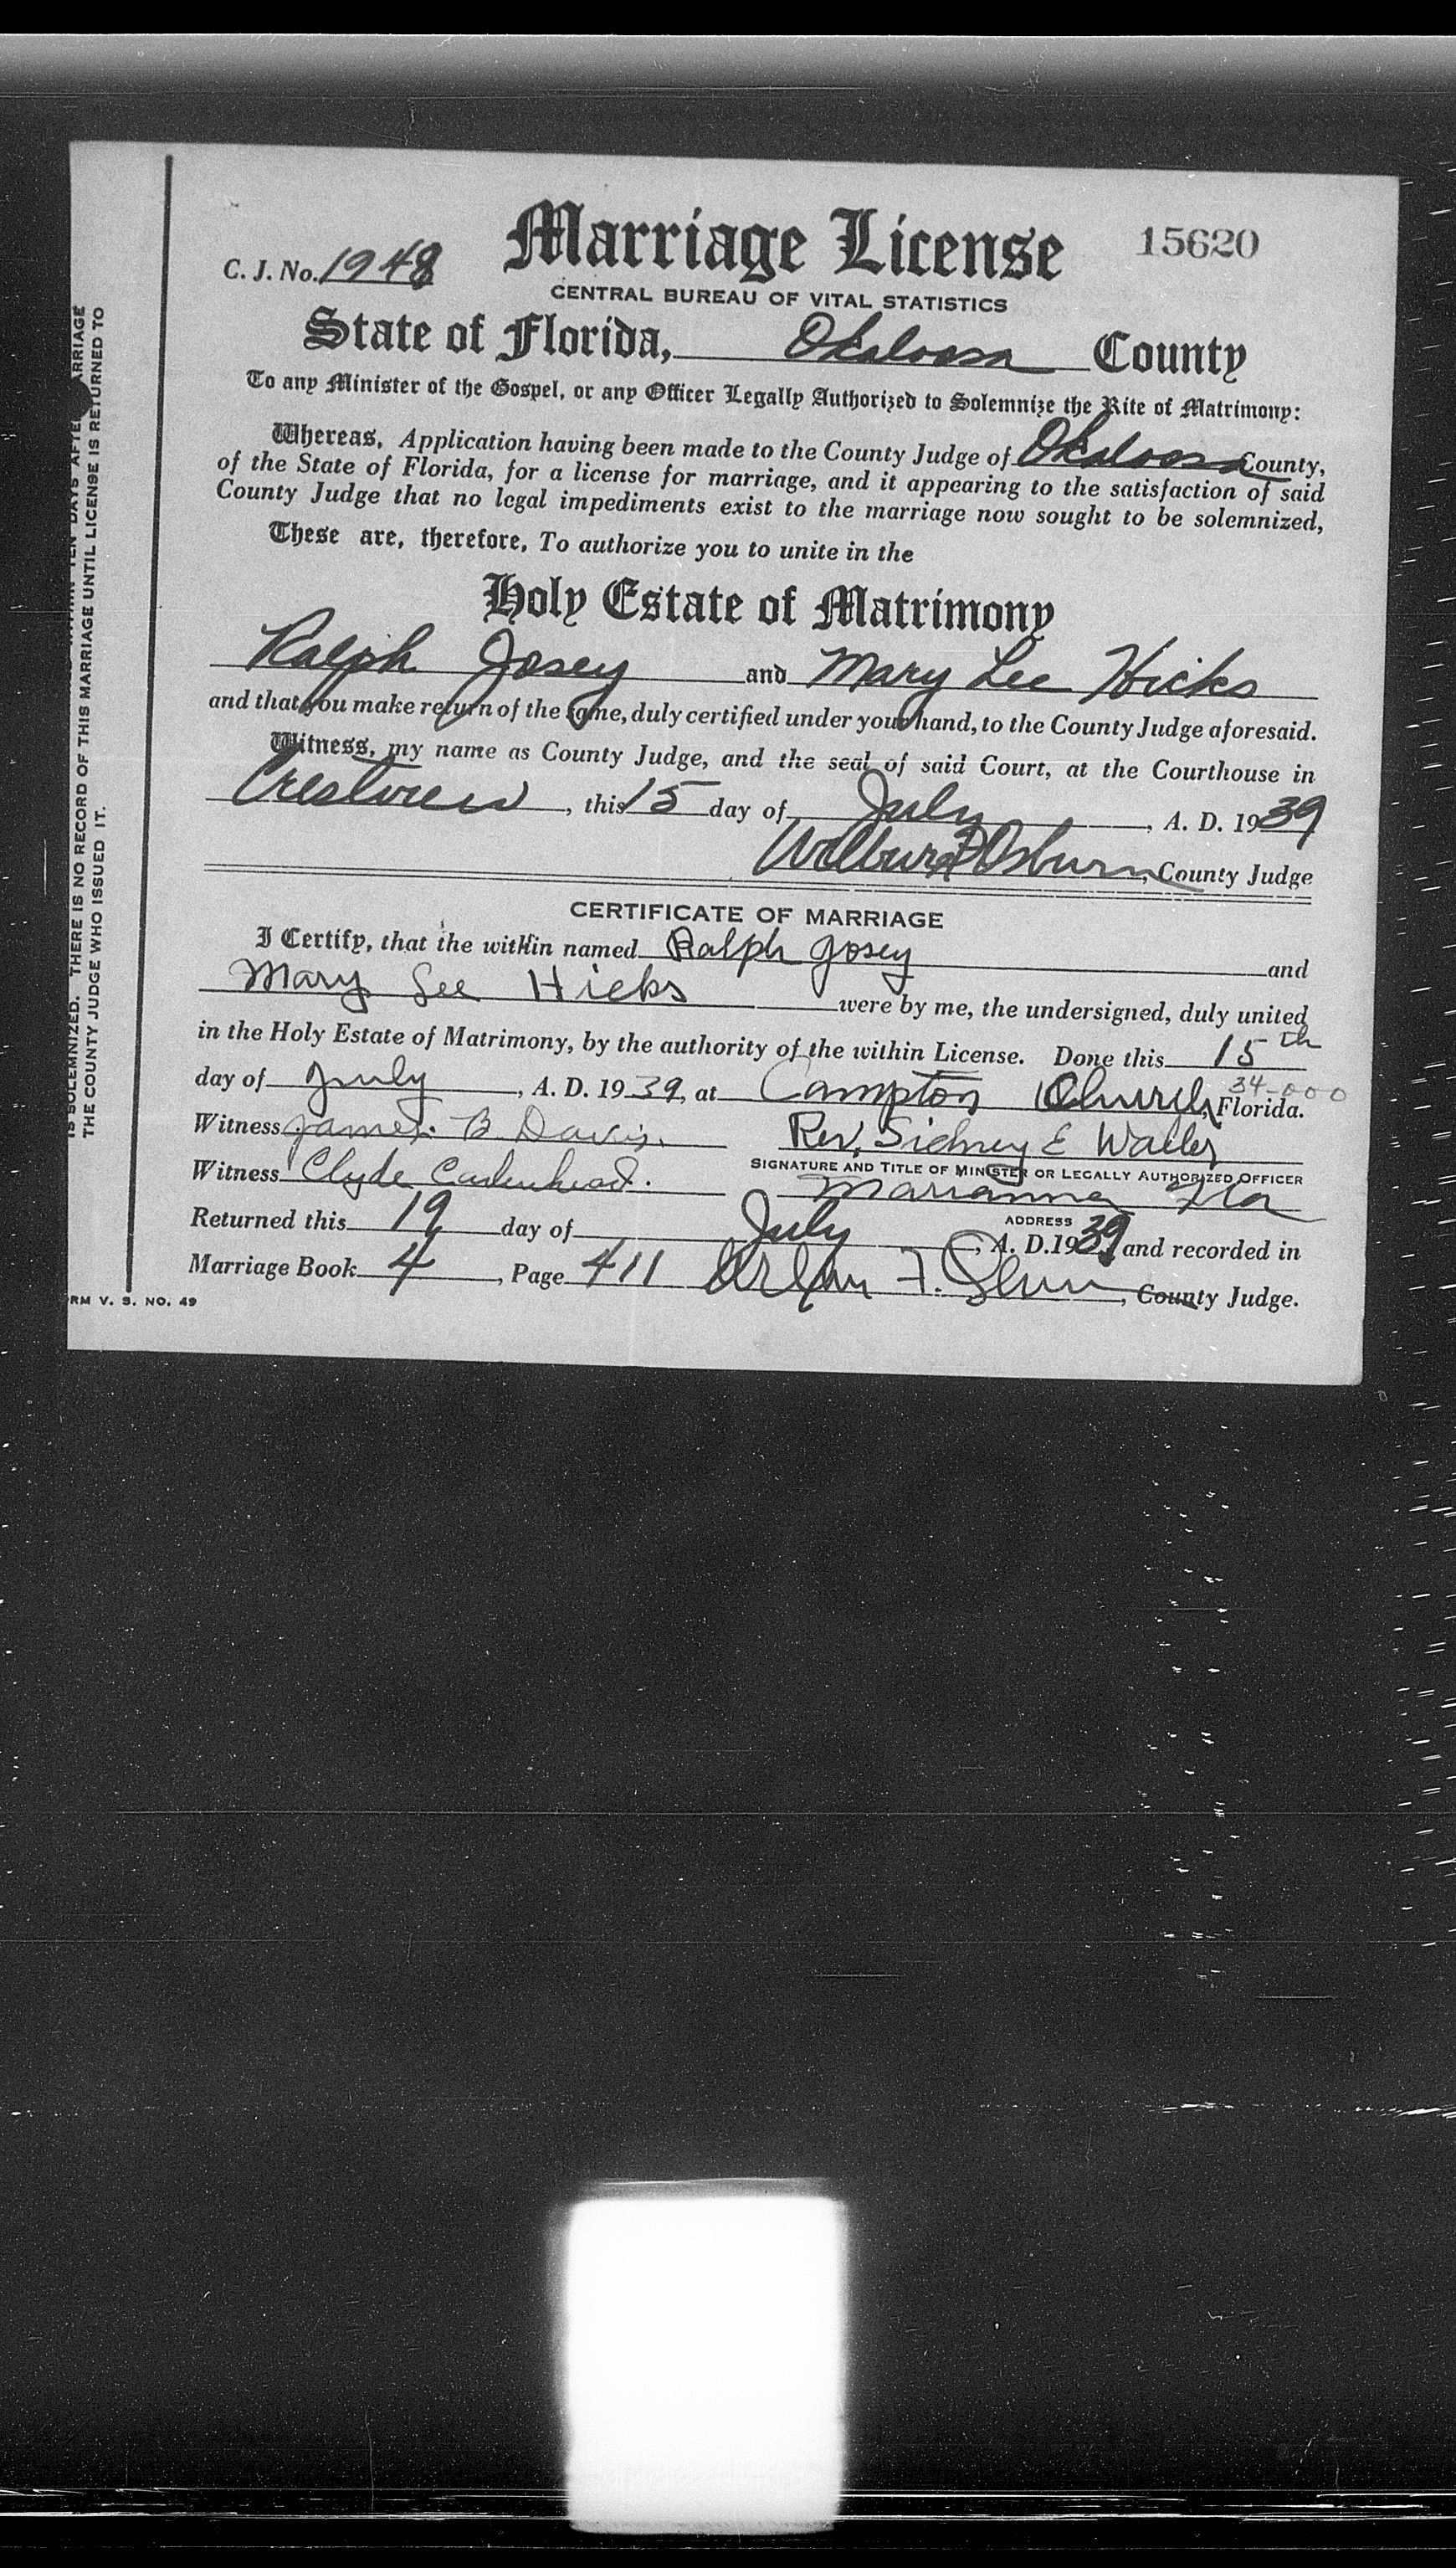 Marriage License
15620
C. J. No. 1948
CENTRAL BUREAU OF VITAL STATISTICS
State of Florida, Okaloosa County
To any Minister of the Gospel, or any Officer Legally Authorized to Solemnize the Rite of Matrimony:
Whereas, Application having been made to the County Judge of Okaloosa County,
of the State of Florida, for a license for marriage, and it appearing to the satisfaction of said
County Judge that no legal impediments exist to the marriage now sought to be solemnized,
These are, therefore, To authorize you to unite in the
Holy Estate of Matrimony
Ralph Josey and Mary Lee Hicks
and that you make return of the same, duly certified under your hand, to the County Judge aforesaid.
Witness, my name as County Judge, and the seal of said Court, at the Courthouse in
Crestview, this 15 day of July, A. D. 1939
Wilbur F Osburn, County Judge
CERTIFICATE OF MARRIAGE
I Certify, that the within named Ralph Josey and
Mary Lee Hicks were by me, the undersigned, duly united
in the Holy Estate of Matrimony, by the authority of the within License. Done this 15th
day of July, A. D. 1939, at Campton Church, Florida.
34-000
Witness James B Davis.
Rev. Sidney E Waller
SIGNATURE AND TITLE OF MINISTER OR LEGALLY AUTHORIZED OFFICER
Witness Clyde
Marianna Fla
ADDRESS
Returned this 19 day of July, A. D. 1939 and recorded in
Marriage Book 4, Page 411 County Judge.
RM V. S. NO. 49
TEN DAYS AFTER MARRIAGE
IS SOLEMNIZED. THERE IS NO RECORD OF THIS MARRIAGE UNTIL LICENSE IS RETURNED TO
THE COUNTY JUDGE WHO ISSUED IT.